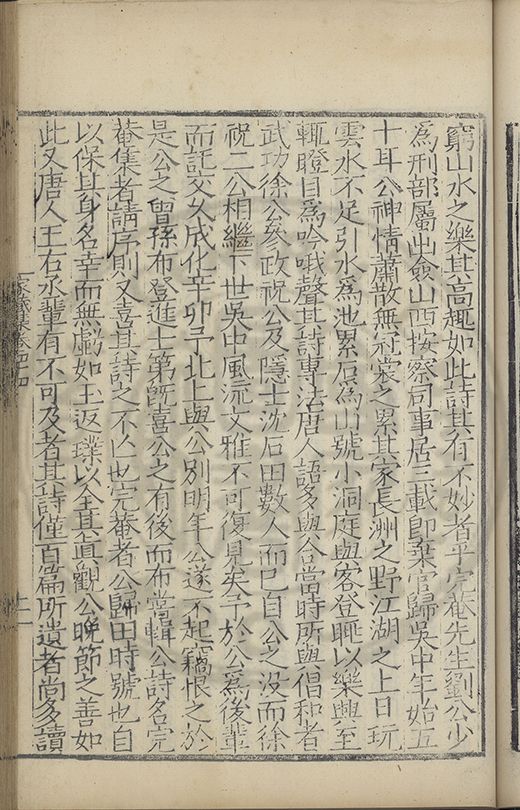 窮山水之樂其高趣如此詩其有不妙者乎完菴先生劉公少
為刑部屬出僉山西按察司事居三載即棄官歸吳中年始五
十耳公神情蕭散無冠裳之累其家長洲之野江湖之上日玩
雲水不足引水為池累石為山號小洞庭與客登眺以樂興至
輒瞪目為吟哦聲其詩專法唐人語多與合當時所與倡和者
武功徐公參政祝公及隱士沈石田數人而已自公之没而徐
祝二公相繼下世吳中風流文雅不可復見矣予於公為後輩
而託交久成化辛卯予北上與公別明年公遂不起竊恨之於
是公之曾孫布登進士第旣喜公之有後而布嘗輯公詩名完
菴集者請序則又喜其詩之不亡也完菴者公歸田時號也自
以保其身名幸而無虧如玉返璞以全其真觀公晚節之善如
此又唐人王右丞輩有不可及者其詩僅百篇所遺者尚多讀
家藏集卷四十四